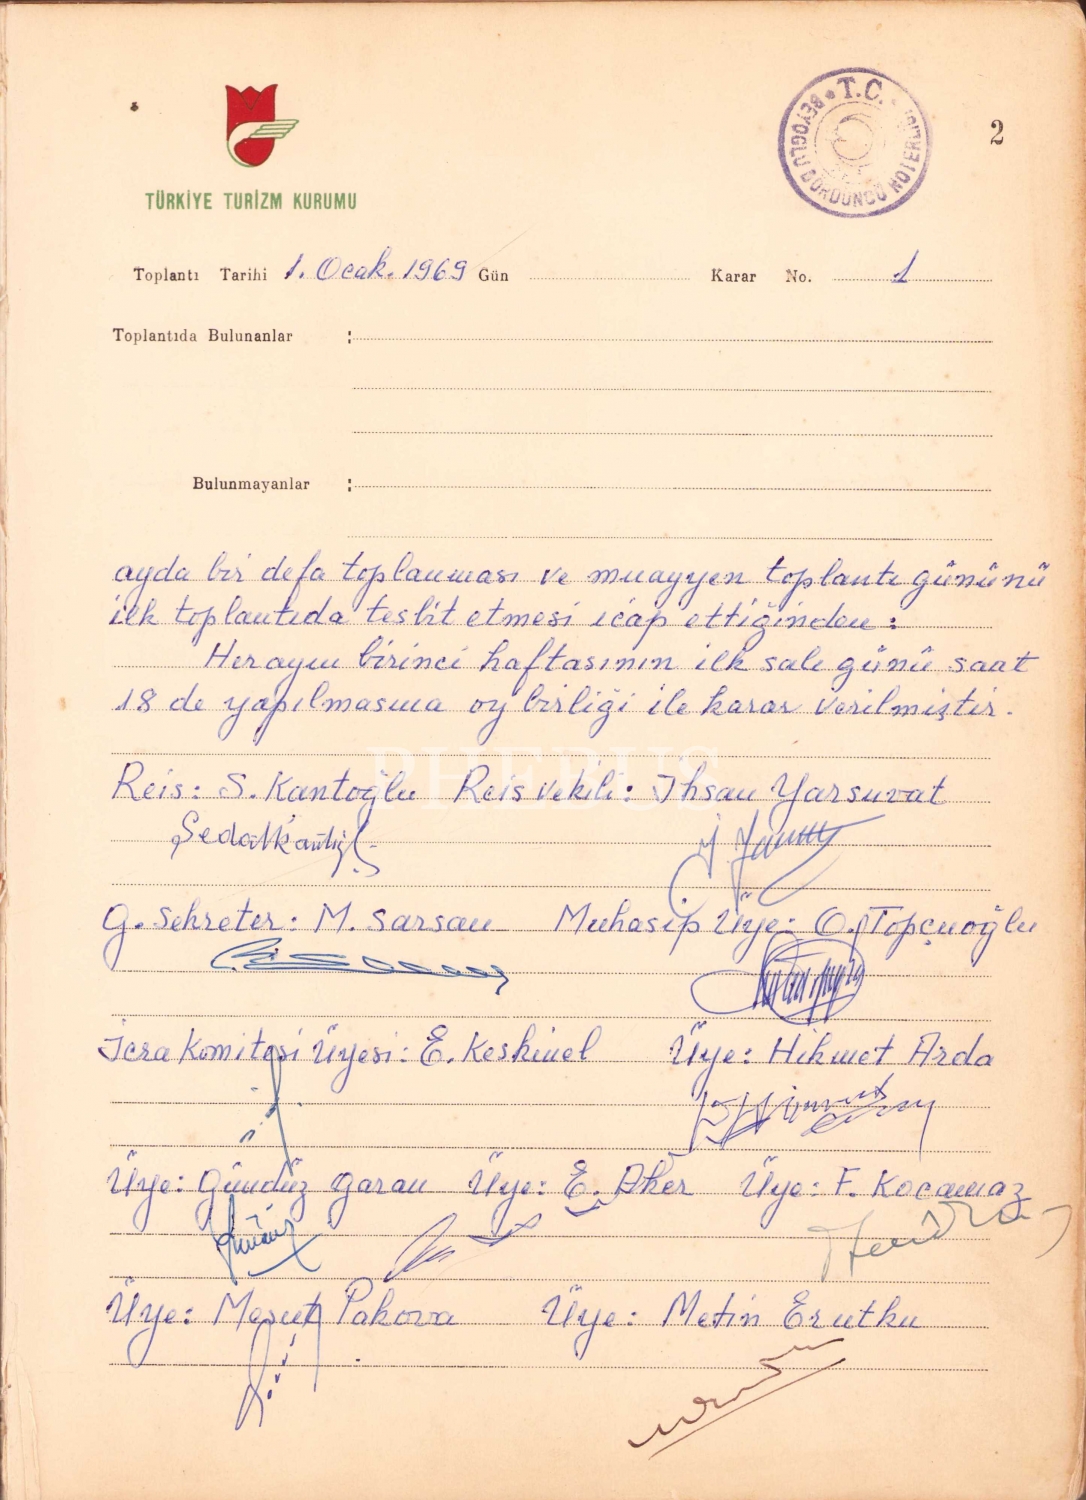 T.C. BEYOĞLU DÖRDÜNCÜ NOTERLİĞİ
2
TÜRKİYE TURİZM KURUMU
Toplantı Tarihi 1. Ocak. 1969 Gün Karar No. 1
Toplantıda Bulunanlar :
Bulunmayanlar :
ayda bir defa toplanması ve muayyen toplantı gününü
ilk toplantıda tesbit etmesi icap ettiğinden:
Her ayın birinci haftasının ilk salı günü saat
18 de yapılmasına oy birliği ile karar verilmiştir.
PHEBUS
Reis: S. Kantoğlu Reis vekili: İhsan Yarsuvat
G. Sekreter: M. Sarsan Muhasip Üye: O. Topçuoğlu
İcra Komitesi Üyesi: E. Keskinel Üye: Hikmet Arda
Üye: Gündüz Garan Üye: E. Aker Üye: F. Kocamaz
Üye: Mesut Pakova Üye: Metin Erutku